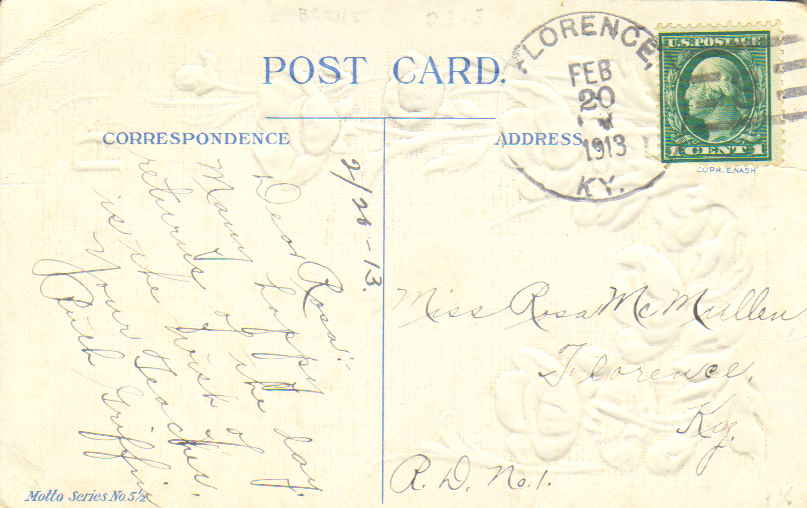 POST CARD.
CORRESPONDENCE
ADDRESS
FLORENCE,
FEB
20
1913
KY.
U.S. POSTAGE
1 CENT 1
COPR. E. NASH
2/20-13.
Dear Rosa:-
Many happy
returns of the day
is the wish of
Your teacher.
Ruth Griffin
Miss Rosa McMullen
Florence,
Ky.
R. D. No. 1.
Motto Series No 5½